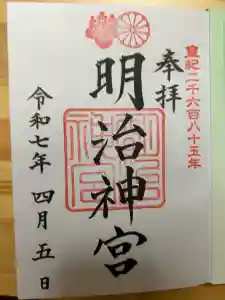 皇紀二千六百八十五年
奉拝
明治神宮
令和七年 四月 五日